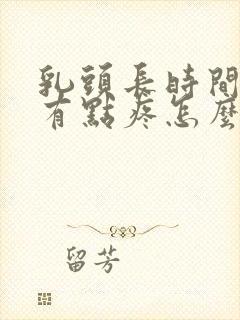 乳頭長時間
有點疼怎麼
留芳